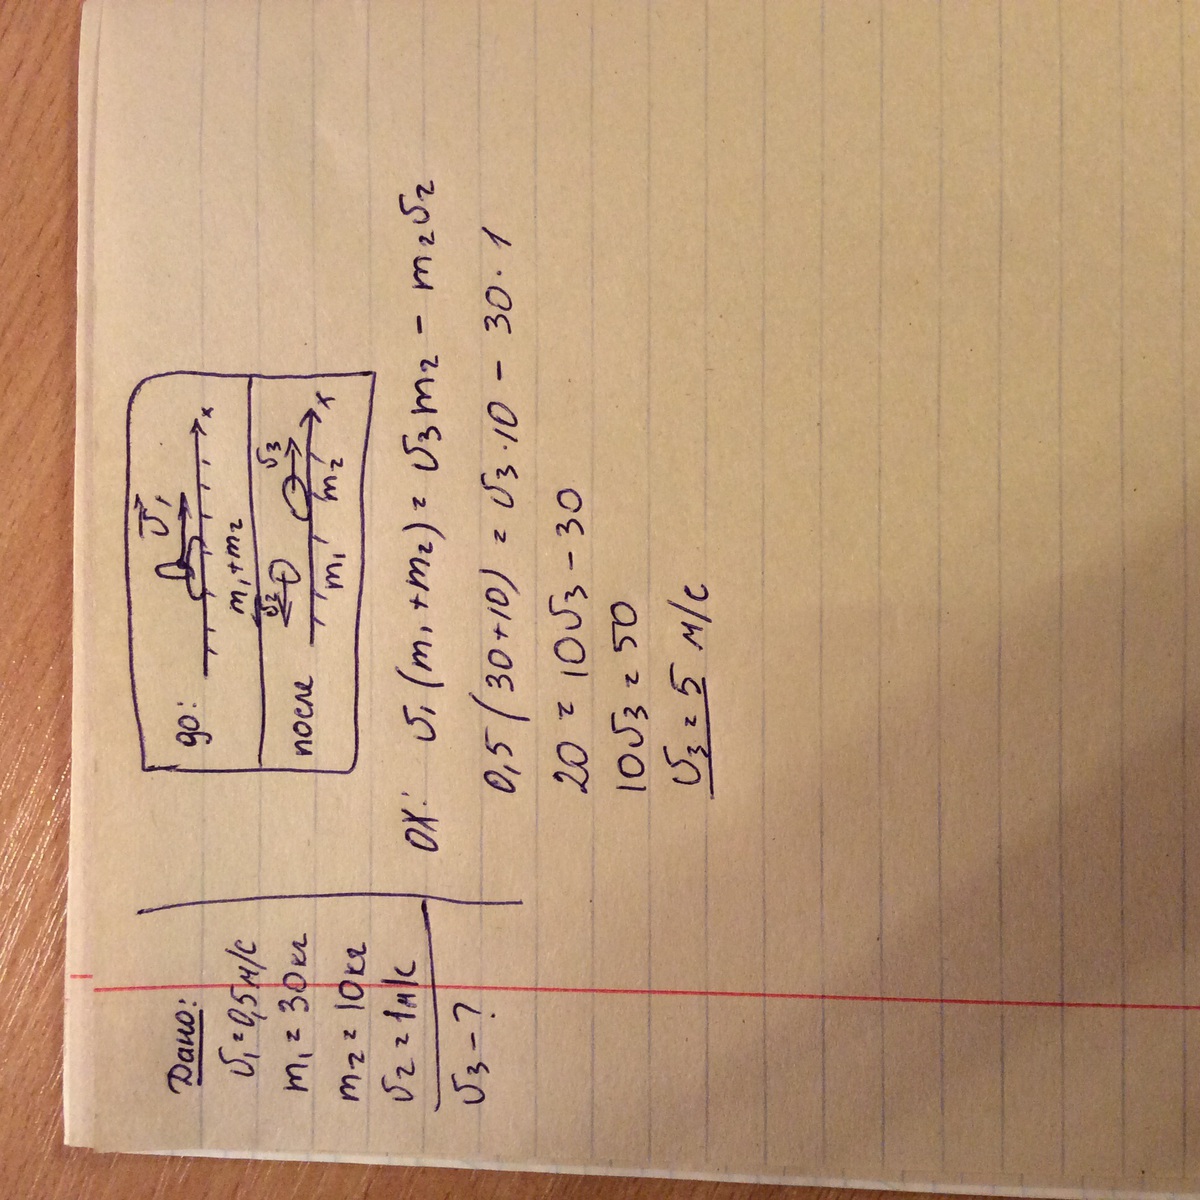 Дано:
υ₁ = 0,5 м/с
m₁ = 30 кг
m₂ = 10 кг
υ₂ = 1 м/с
υ₃ - ?
до:
υ₁
x
m₁ + m₂
после
υ₂
υ₃
m₁
m₂
x
OX: υ₁(m₁ + m₂) = υ₃m₂ - m₂υ₂
0,5(30+10) = υ₃·10 - 30·1
20 = 10υ₃ - 30
10υ₃ = 50
υ₃ = 5 м/с